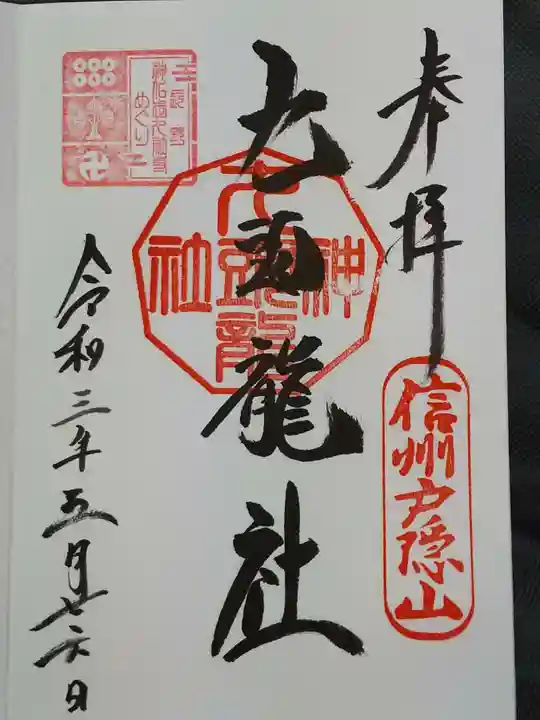 奉拝
信州戸隠山
九頭龍社
神
九頭龍
社
令和三年五月廿六日
めぐり